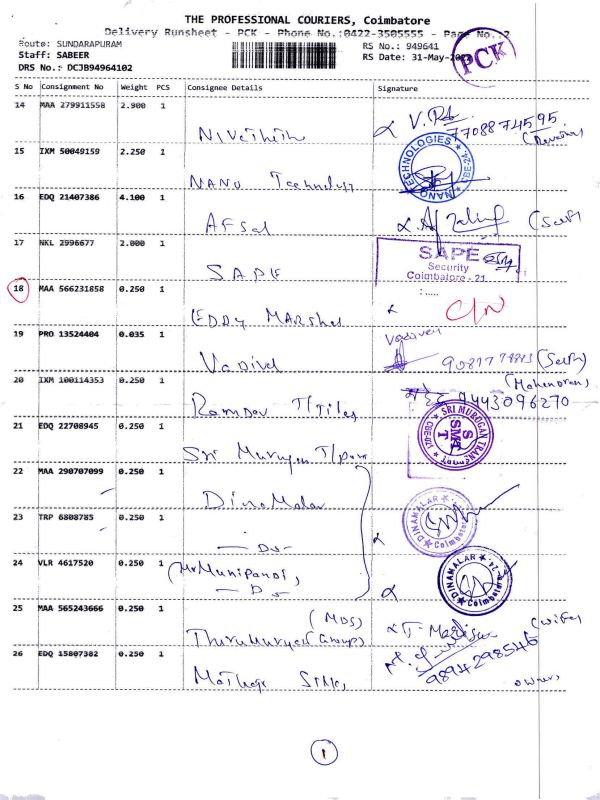 THE PROFESSIONAL COURIERS, Coimbatore
Delivery Runsheet - PCK - Phone No.:0422-3505555 - Page No.:2
Route: SUNDARAPURAM RS No.: 949641
Staff: SABEER RS Date: 31-May-
DRS No.: DCJB94964102
PCK
S No Consignment No Weight PCS Consignee Details Signature
14 MAA 279911558 2.900 1
77088 74595
15 IXM 50049159 2.250 1 NANO Technology
NANO TECHNOLOGIES CBE-24
16 EDQ 21407386 4.100 1 AFSal (Self)
17 NKL 2996677 2.000 1 SAPE
SAPE
Security
Coimbatore - 21
18 MAA 566231858 0.250 1 EDDY MARShel C/N
19 PRO 13524404 0.035 1 Vadivel
(Self)
20 IXM 100114353 0.250 1 Ramdev T/Tiles
(Mahendran)
9443096270
21 EDQ 22708945 0.250 1 Sri Murugan T/port
SRI MURUGAN TRANSPORT CBE-021
S
SMT
T
22 MAA 290707099 0.250 1 DinaMalar
DINAMALAR Coimbatore
23 TRP 6808785 0.250 1 - Do -
24 VLR 4617520 0.250 1 (Mr Munipandi,
- Do -
DINAMALAR Coimbatore - 24
25 MAA 565243666 0.250 1 (MDS)
ThiruMurugan Groups
(wife)
26 EDQ 15807382 0.250 1
9894298546
owner,
1